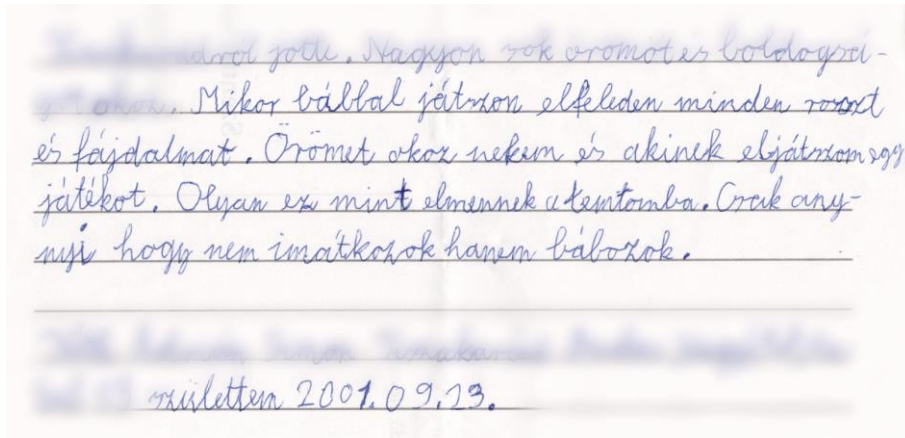 jött. Nagyon sok örömöt és boldogsá-
Mikor bábbal játszon elfeleden minden rosszt
és fájdalmat. Örömet okoz nekem és akinek eljátszom egy
játékot. Olyan ez mint elmennek a temtomba. Csak any-
nyi hogy nem imátkozok hanem bábozok.
születtem 2001.09.23.